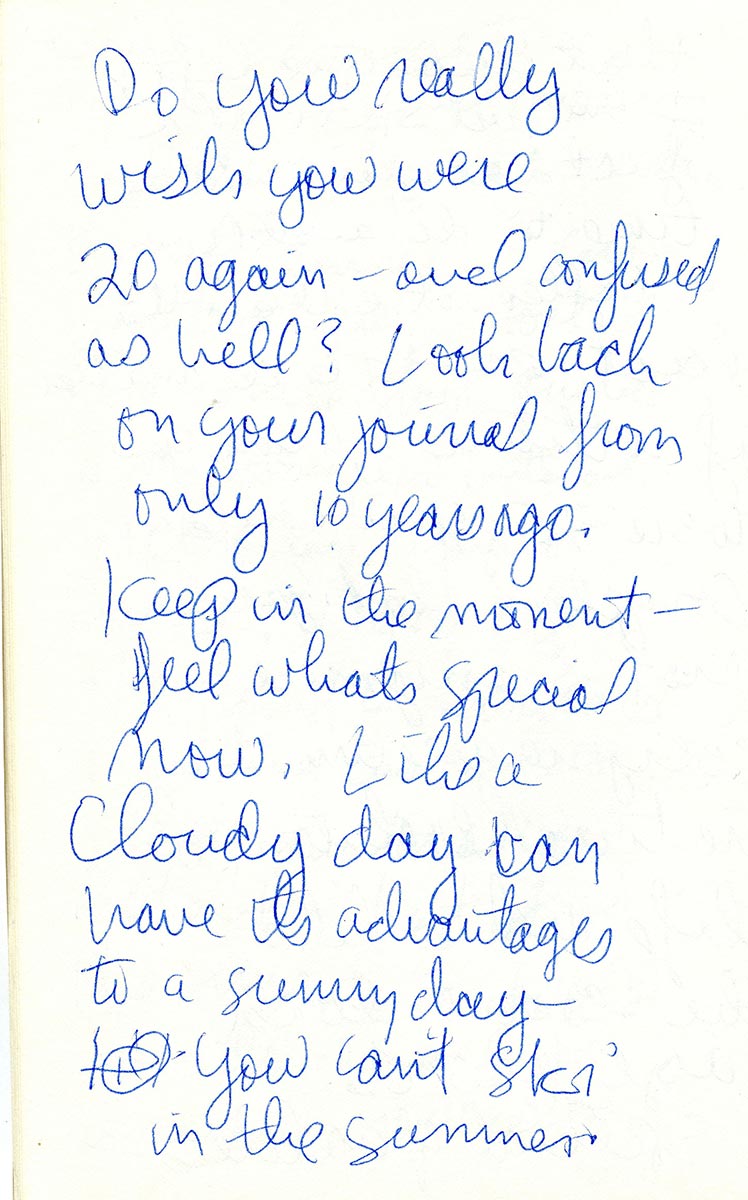 Do you really
wish you were
20 again – and confused
as hell? Look back
on your journal from
only 10 years ago.
Keep in the moment –
feel whats special
now. Like a
Cloudy day can
have its advantages
to a sunny day –
You can't Ski
in the summer.